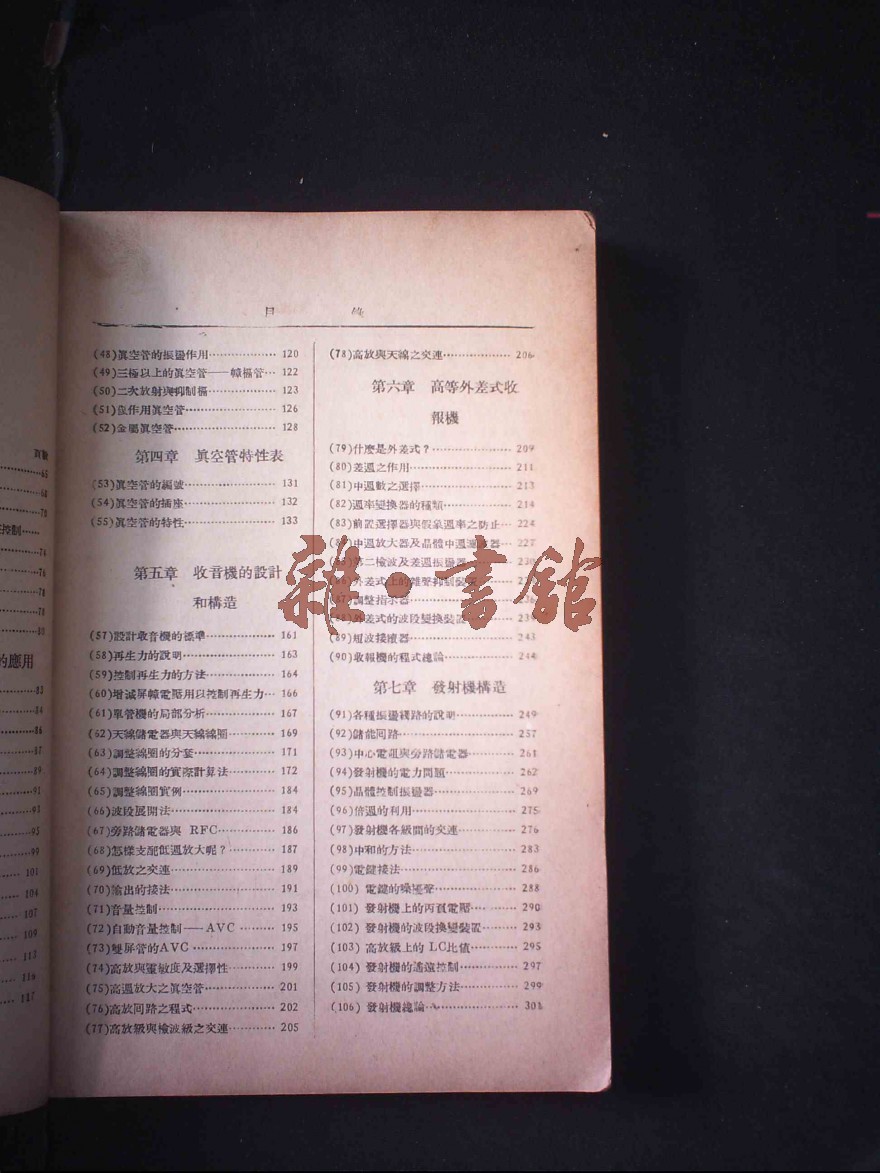 目 錄
(48)眞空管的振盪作用 120
(49)三極以上的眞空管——幛極管 122
(50)二次放射與抑制極 123
(51)複作用眞空管 126
(52)金屬眞空管 128
第四章 眞空管特性表
(53)眞空管的編號 131
(54)眞空管的插座 132
(55)眞空管的特性 133
第五章 收音機的設計
和構造
(57)設計收音機的標準 161
(58)再生力的說明 163
(59)控制再生力的方法 164
(60)增減屏幛電壓用以控制再生力 166
(61)單管機的局部分析 167
(62)天線儲電器與天線線圈 169
(63)調整線圈的分套 171
(64)調整線圈的實際計算法 172
(65)調整線圈實例 184
(66)波段展開法 184
(67)旁路儲電器與 RFC 186
(68)怎樣支配低週放大呢? 187
(69)低放之交連 189
(70)輸出的接法 191
(71)音量控制 193
(72)自動音量控制——AVC 195
(73)雙屏管的AVC 197
(74)高放與靈敏度及選擇性 199
(75)高週放大之眞空管 201
(76)高放回路之程式 202
(77)高放級與檢波級之交連 205
(78)高放與天線之交連 206
第六章 高等外差式收
報機
(79)什麼是外差式? 209
(80)差週之作用 211
(81)中週數之選擇 213
(82)週率變換器的種類 214
(83)前置選擇器與假象週率之防止 224
(84)中週放大器及晶體中週濾波器 227
(85)第二檢波及差週振盪器
(86)外差式上的雜聲抑制裝置
(87)調整指示器
(88)外差式的波段變換裝置
(89)短波接續器 243
(90)收報機的程式總論 244
第七章 發射機構造
(91)各種振盪綫路的說明 249
(92)儲能回路 257
(93)中心電阻與旁路儲電器 261
(94)發射機的電力問題 262
(95)晶體控制振盪器 269
(96)倍週的利用 275
(97)發射機各級間的交連 276
(98)中和的方法 283
(99)電鍵接法 286
(100) 電鍵的噪聲 288
(101) 發射機上的丙負電壓 290
(102) 發射機的波段換變裝置 293
(103) 高放級上的 LC比值 295
(104) 發射機的遙遠控制 297
(105) 發射機的調整方法 299
(106) 發射機總論 301
的應用
雜·書館